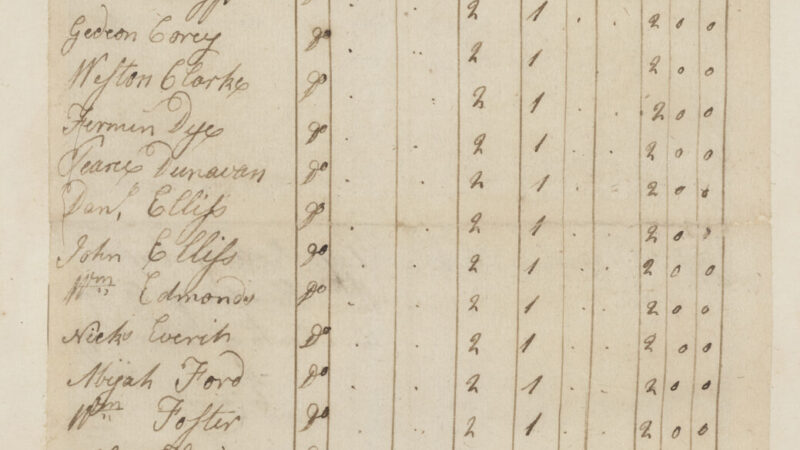 Gedeon Corey do . . 2 1 . . 2 0 0
Weston Clarke do . . 2 1 . . 2 0 0
Fermin Dye do . . 2 1 . . 2 0 0
Pearce Dunavan do . . 2 1 . . 2 0 0
Danl. Elliss do . . 2 1 . . 2 0 0
John Elliss do . . 2 1 . . 2 0 0
Wm Edmonds do . . 2 1 . . 2 0 0
Nicks Everih do . . 2 1 . . 2 0 0
Abijah Ford do . . 2 1 . . 2 0 0
Wm Foster do . . 2 1 . . 2 0 0